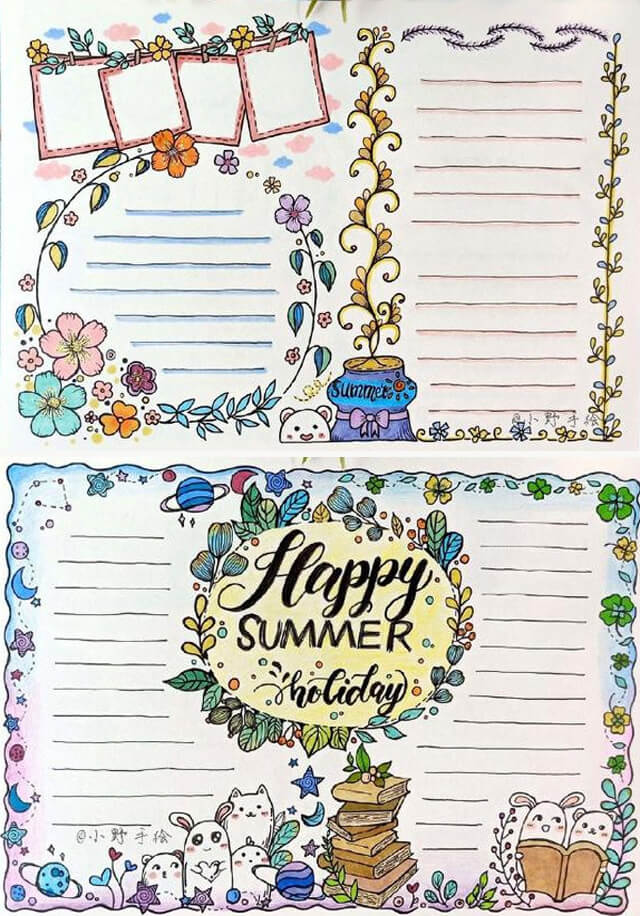 summer
@小野手绘
Happy
SUMMER
holiday
@小野手绘